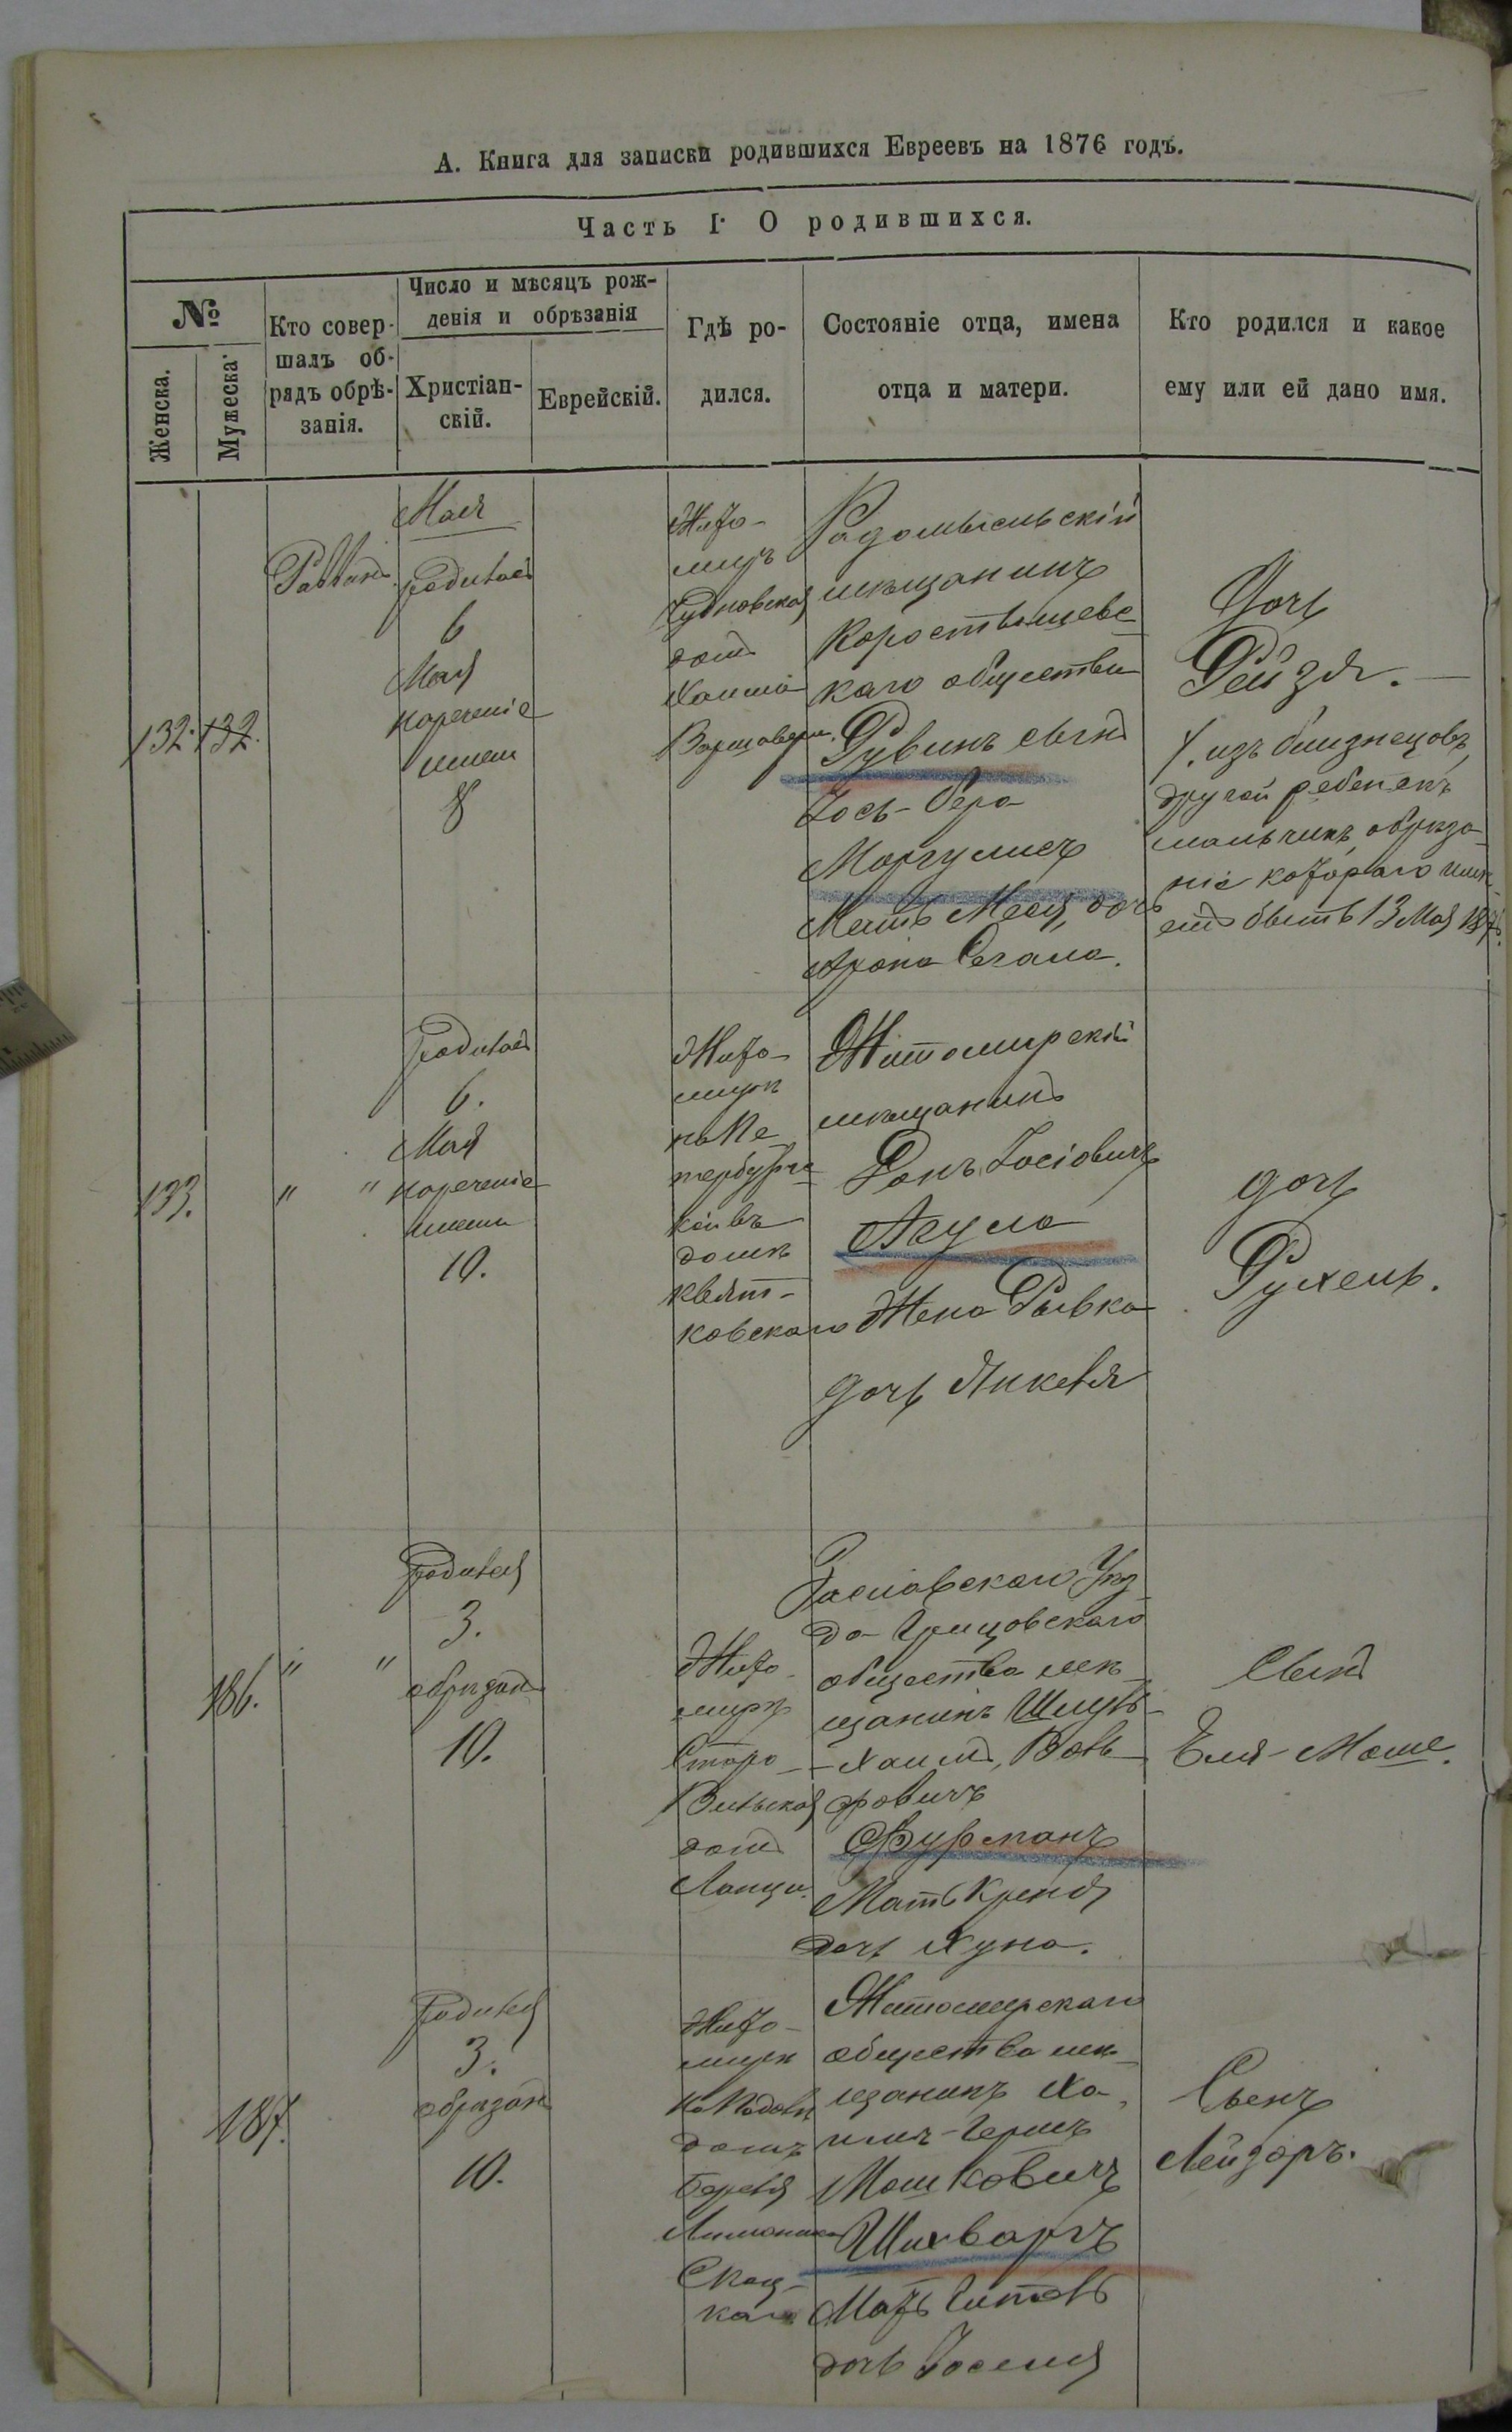 А. Книга для записки родившихся Евреевъ на 1876 годъ.
Часть I. О родившихся.
№
Женска.
Мужеска
Кто совер-
шалъ об-
рядъ обрѣ-
занія.
Число и мѣсяцъ рож-
денія и обрѣзанія
Христіан-
скій.
Еврейскій.
Гдѣ ро-
дился.
Состояніе отца, имена
отца и матери.
Кто родился и какое
ему или ей дано имя.
132.
132.
Раввинъ.
Мая
родилась
6
Мая
нареченіе
имени
8
Жито-
миръ
Чудновская
домъ
Хаима
Радомысльскій
мѣщанинъ
Коростышевс-
каго общества
Рувинъ сынъ
Іось-Бера
Моргулисъ
Мать Меся, дочь
Арона Сегала.
Дочь
Рейзя.
1. изъ близнецовъ,
другой ребенокъ
мальчикъ, обрѣза-
ніе котораго имѣ-
етъ быть 13 Мая 1876.
133.
" "
родилась
6.
Мая
нареченіе
имени
10.
Жито-
мирѣ
на Пе-
тербургс-
кой въ
домѣ
Квят-
ковскаго
Житомирскій
мѣщанинъ
Іосіовичъ
Жена Рывка
дочь Янкеля
дочь
Рухель.
186.
" "
родился
3.
обрѣзанъ
10.
Жито-
миръ
Старо-
Вильская
домъ
Заславскаго Уѣз-
да Грицовскаго
общества мѣ-
щанинъ Шмуль-
-Хаимъ, Воль-
фовичъ
Фурманъ
Мать Крейня
дочь Хуна.
Сынъ
Еля-Моше.
187.
родился
3.
обрѣзанъ
10.
Жито-
мирѣ
домъ
Житомирскаго
общества мѣ-
щанинъ Ха-
имъ-Гершъ
Мошковичъ
Шихваргъ
Мать Гитель
дочь Іоселия
Сынъ
Лейзоръ.